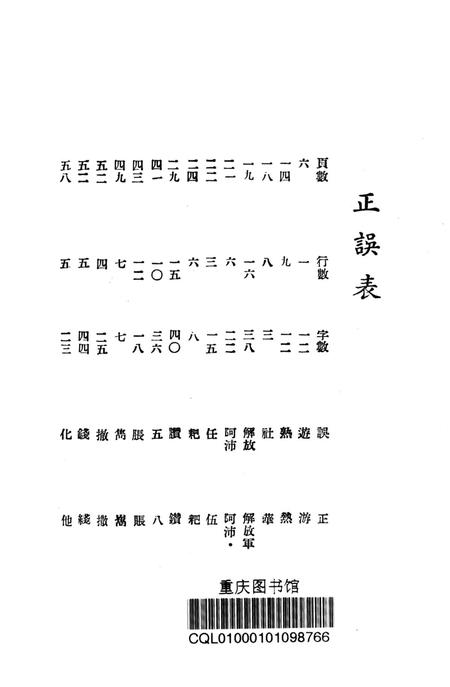 正誤表
頁數 行數 字數 誤 正
六 一 一二 遊 游
一四 九 一二 熟 熱
一八 八 三 社 華
一九 一六 三八 解放 解放軍
二一 六 二二 阿沛 阿沛·
二二 三 一五 任 伍
二四 六 八 粑
二九 一五 四〇 讚 鑽
四一 一〇 三六 五 八
四三 一二 一八 脹 賬
四九 七 七
五二 四 二五 撤 撒
五二 五 四四 錢 綫
五八 五 二三 化 他
重庆图书馆
CQL01000101098766